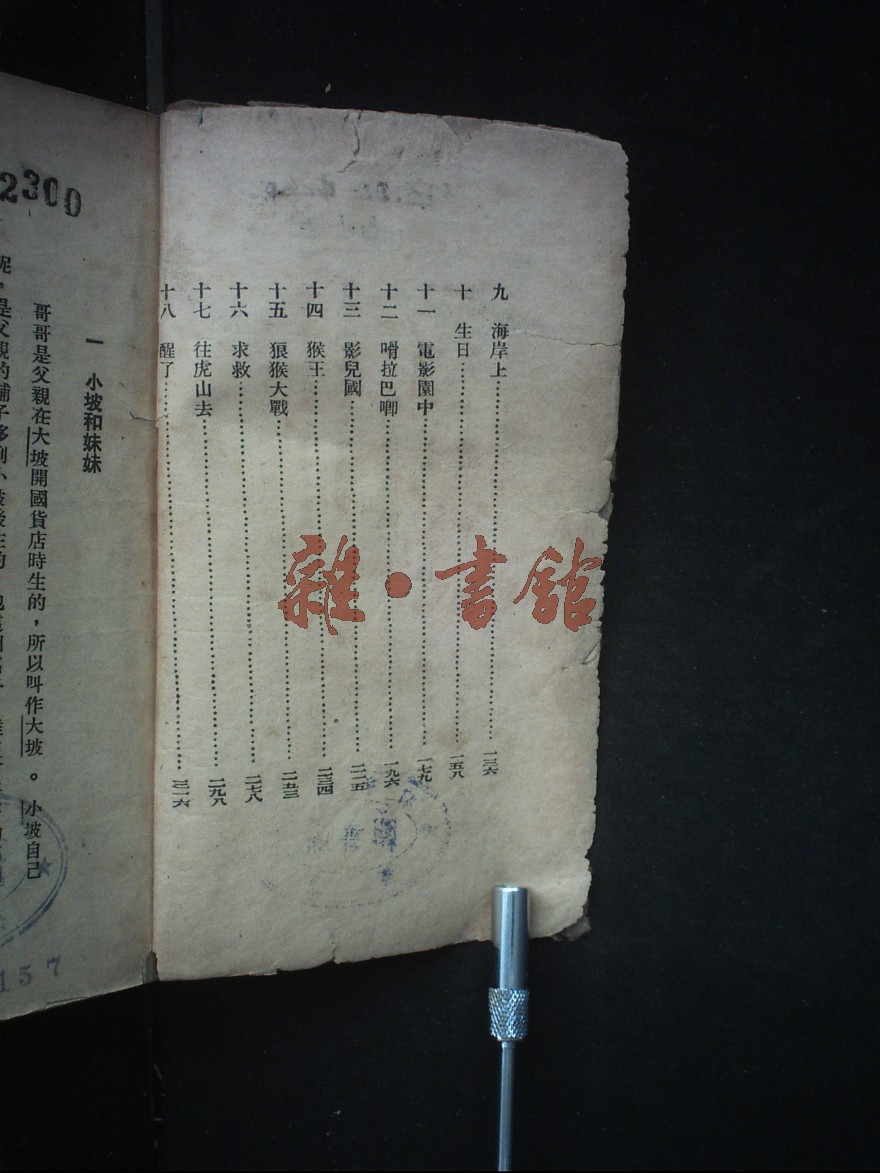 九 海岸上……一三六
十 生日……一五八
十一 電影園中……一七九
十二 嗗拉巴唧……一九六
十三 影兒國……二一五
十四 猴王……二三四
十五 狼猴大戰……二五三
十六 求救……二七八
十七 往虎山去……二九八
十八 醒了……三一六
雜·書館
2300
一 小坡和妹妹
哥哥是父親在大坡開國貨店時生的，所以叫作大坡。小坡自己
呢，是父親的鋪子移到小坡後生的
157